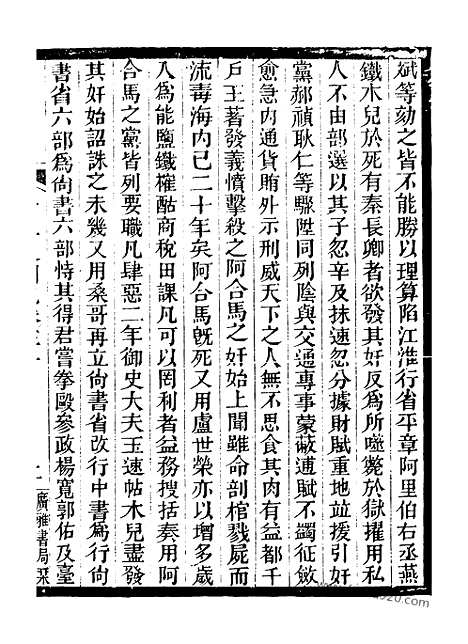 斌等劾之皆不能勝以理算陷江淮行省平章阿里伯右丞燕
鐵木兒於死有秦長卿者欲發其奸反為所噬斃於獄擢用私
人不由部選以其子忽辛及抹速忽分據財賦重地並援引奸
黨郝禎耿仁等驟陞同列陰與交通專事蒙蔽逋賦不蠲征斂
愈急內通貨賄外示刑威天下之人無不思食其肉有益都千
戶王著發義憤擊殺之阿合馬之奸始上聞雖命剖棺戮屍而
流毒海內已二十年矣阿合馬旣死又用盧世榮亦以增多歲
入為能鹽鐵榷酤商稅田課凡可以罔利者益務搜括奏用阿
合馬之黨皆列要職凡肆惡二年御史大夫玉速帖木兒盡發
其奸始詔誅之未幾又用桑哥再立尙書省改行中書為行尙
書省六部為尙書六部恃其得君嘗拳毆參政楊寬郭佑及臺
廣雅書局栞